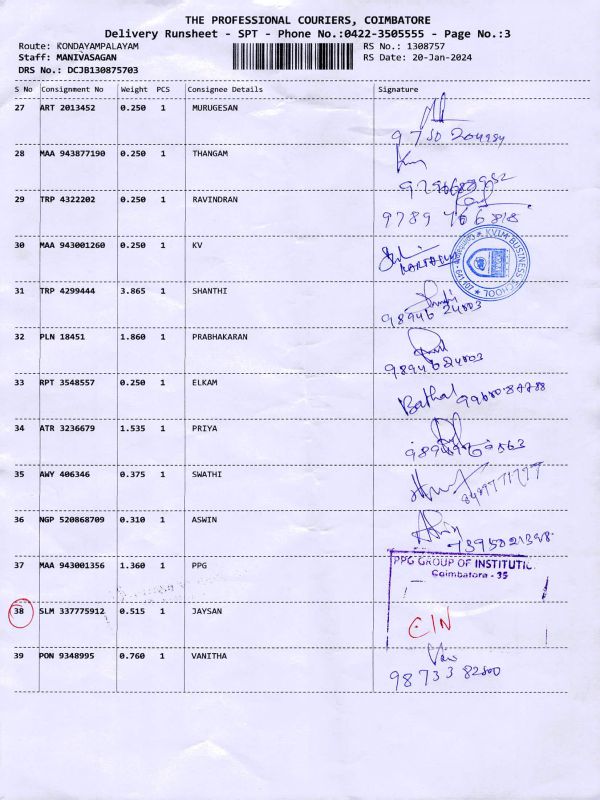 THE PROFESSIONAL COURIERS, COIMBATORE
Delivery Runsheet - SPT - Phone No.:0422-3505555 - Page No.:3
Route: KONDAYAMPALAYAM RS No.: 1308757
Staff: MANIVASAGAN RS Date: 20-Jan-2024
DRS No.: DCJB130875703
S No Consignment No Weight PCS Consignee Details Signature
27 ART 2013452 0.250 1 MURUGESAN
28 MAA 943877190 0.250 1 THANGAM
29 TRP 4322202 0.250 1 RAVINDRAN
9789 766 818
30 MAA 943001260 0.250 1 KV
KVIM BUSINESS SCHOOL
641 107
31 TRP 4299444 3.865 1 SHANTHI
98946 24803
32 PLN 18451 1.860 1 PRABHAKARAN
98946 24803
33 RPT 3548557 0.250 1 ELKAM
Bathal
34 ATR 3236679 1.535 1 PRIYA
35 AWY 406346 0.375 1 SWATHI
36 NGP 520868709 0.310 1 ASWIN
37 MAA 943001356 1.360 1 PPG
PPG GROUP OF INSTITUTIO
Coimbatore - 35
38 SLM 337775912 0.515 1 JAYSAN
C/N
39 PON 9348995 0.760 1 VANITHA
98733 82500